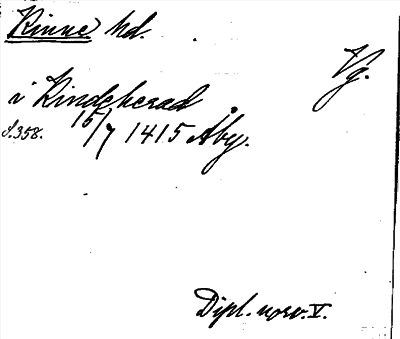 Kinne hd.
Vg.
i Kindeherad
s. 358. 15/7 1415 Åby.
Dipl. norv. V.